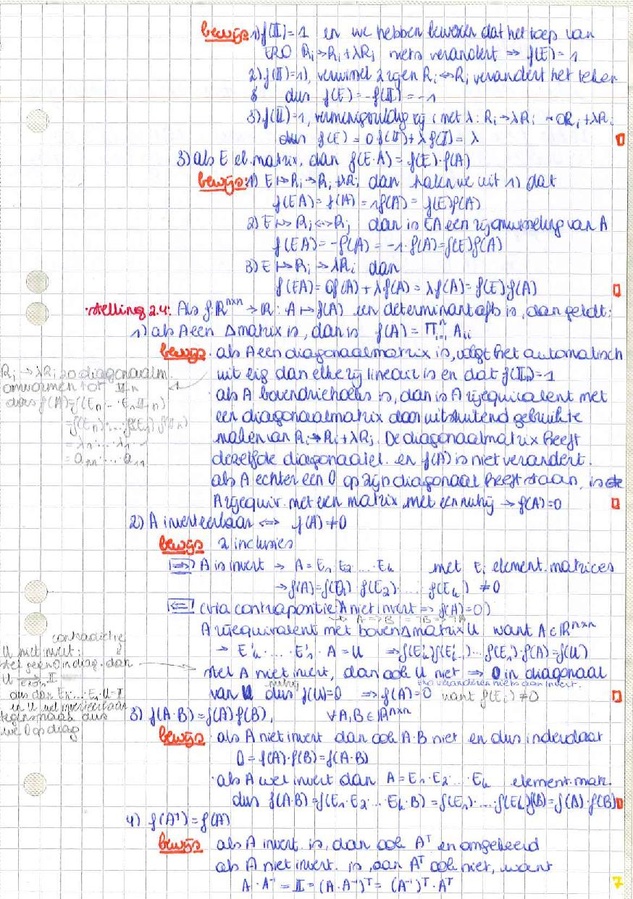 bewijs 1) f(𝕀)=1 en we hebben bewezen dat het toep van
ERO Rᵢ→Rᵢ+λRⱼ niets verandert ⇒ f(E)=1
2) f(𝕀)=1, verwissel 2 rijen Rᵢ↔Rⱼ verandert het teken
dus f(E)=-f(𝕀)=-1
3) f(𝕀)=1, vermenigvuldig rij i met λ: Rᵢ→λRᵢ ~ 0Rᵢ+λRᵢ
dus f(E)=0f(𝕀)+λf(𝕀)=λ
3) als E el. matrix, dan f(E·A)=f(E)·f(A)
bewijs: 1) E↦Rᵢ→Rᵢ+λRⱼ dan halen we uit 1) dat
f(EA)=f(A)=1f(A)=f(E)f(A)
2) E↦Rᵢ↔Rⱼ dan is EA een rijomwisseling van A
f(EA)=-f(A)=-1·f(A)=f(E)f(A)
3) E↦Rᵢ→λRᵢ dan
f(EA)=0f(A)+λf(A)=λf(A)=f(E)·f(A)
stelling 2.4: Als f:ℝⁿˣⁿ→ℝ: A↦f(A) een determinantafb is, dan geldt:
1) als A een Δmatrix is, dan is f(A)=∏ⁿᵢ₌₁ Aᵢᵢ
bewijs · als A een diagonaalmatrix is, volgt het automatisch
uit eig dan elke rij lineair is en dat f(𝕀ₙ)=1
· als A bovendriehoeks is, dan is A rijequivalent met
een diagonaalmatrix door uitsluitend gebruik te
maken van Rᵢ→Rᵢ+λRⱼ. De diagonaalmatrix heeft
dezelfde diagonaalel. en f(A) is niet veranderd.
als A echter een 0 op zijn diagonaal heeft staan, is
A rijequiv. met een matrix met een nulrij → f(A)=0
Rᵢ→λRᵢ zo diagonaalm
omvormen tot 𝕀ₙ
dus f(A)=f(Eₙ…E₁𝕀ₙ)
=f(Eₙ)…f(E₁)f(𝕀ₙ)
=λₙ…λ₁
=a₁₁…aₙₙ
2) A inverteerbaar ⇔ f(A)≠0
bewijs 2 inclusies
⇒ A is invert → A=E₁E₂…Eₖ met Eᵢ element. matrices
→ f(A)=f(E₁)f(E₂)…f(Eₖ)≠0
⇐ (via contrapositie A niet invert ⇒ f(A)=0)
A rijequivalent met bovenΔmatrix U want A∈ℝⁿˣⁿ
→ E'ₖ…E'₁·A=U ⇒ f(E'ₖ)…f(E'₁)·f(A)=f(U)
stel A niet invert, dan ook U niet ⇒ 0 in diagonaal
van U dus f(U)=0 ⇒ f(A)=0 want f(Eᵢ)≠0
contradictie
U niet invert:
stel geen 0 in diag. dan
dus dan Eₖ…E₁·U=𝕀
en U wel inverteerbaar
tegenspraak dus
wel 0 op diag
3) f(A·B)=f(A)f(B), ∀A,B∈ℝⁿˣⁿ
bewijs · als A niet invert dan ook A·B niet en dus inderdaad
0=f(A)·f(B)=f(A·B)
· als A wel invert dan A=E₁·E₂…Eₖ element. matr.
dus f(A·B)=f(E₁·E₂…Eₖ·B)=f(E₁)…f(Eₖ)f(B)=f(A)·f(B)
4) f(Aᵀ)=f(A)
bewijs als A invert. is, dan ook Aᵀ en omgekeerd
als A niet invert. is, dan Aᵀ ook niet, want
A·A⁻¹=𝕀=(A·A⁻¹)ᵀ=(A⁻¹)ᵀ·Aᵀ
7